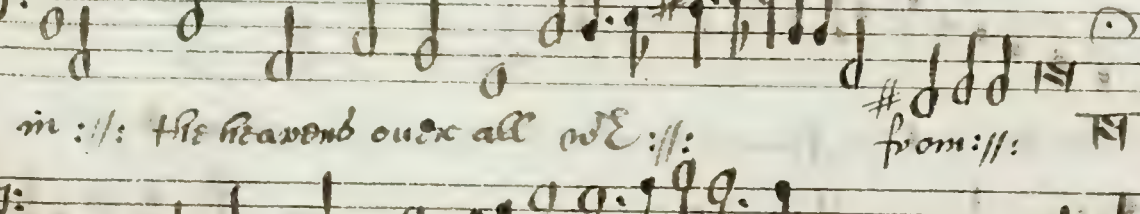 in :||: the heavens ouer all wt :||: from :||: